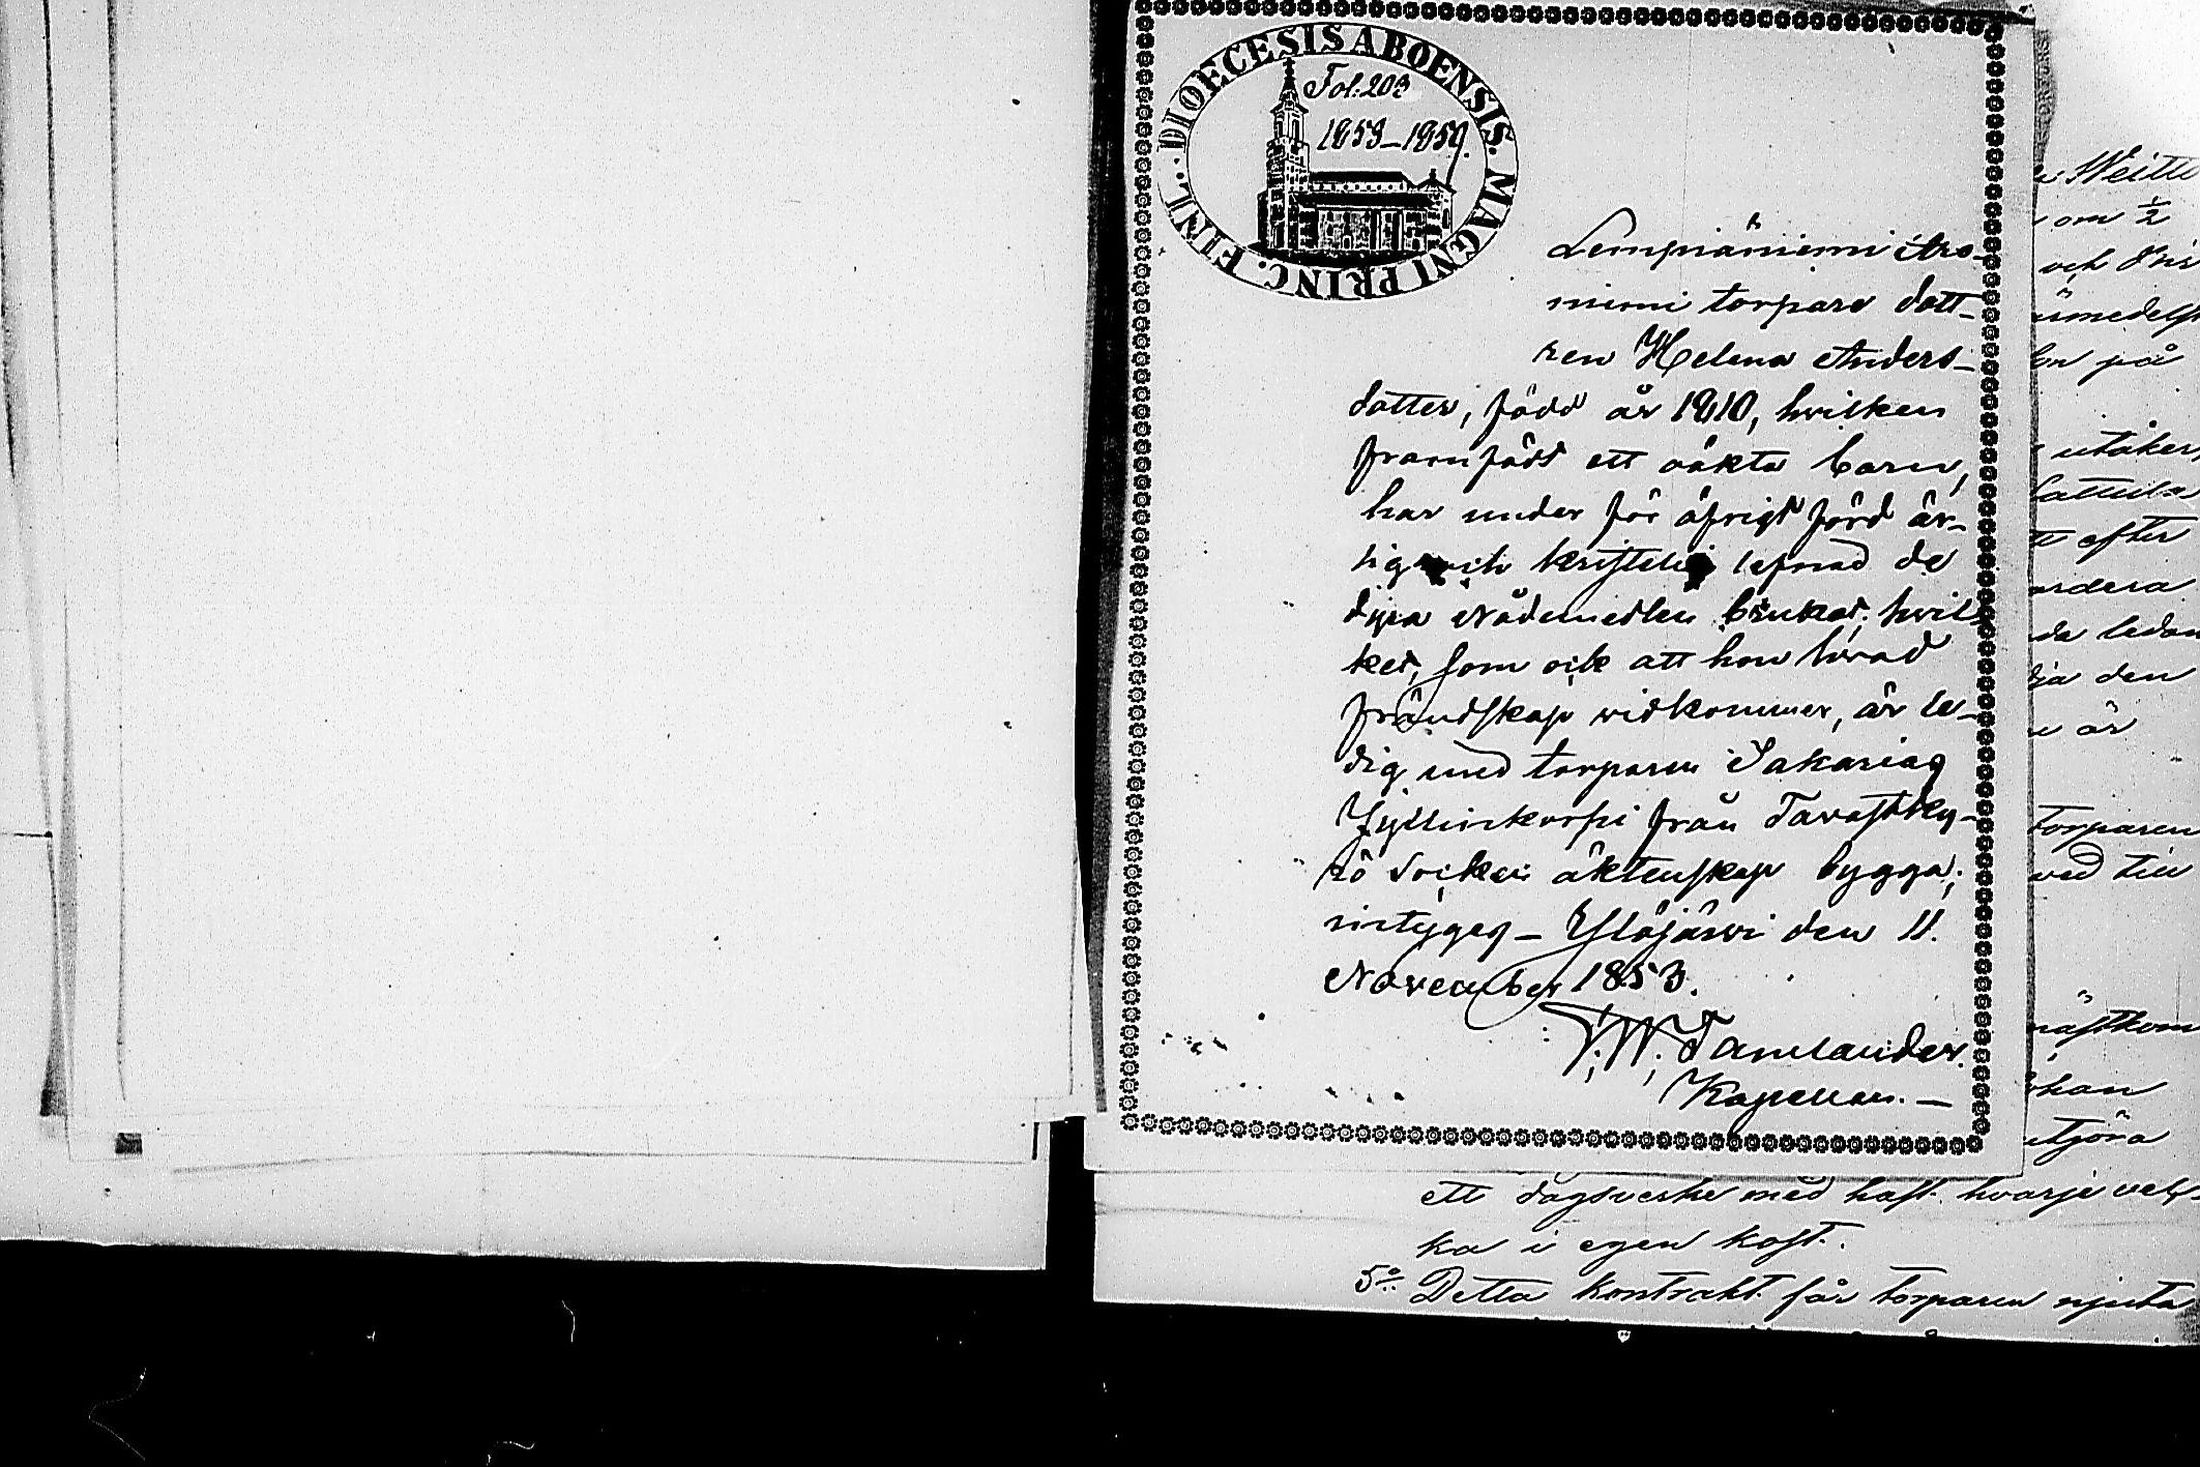 DIOECESIS ABOENSIS. MAGNI PRINC. FINL..
Fol: 203
1853–1859.
Lempiäniemi Aro-
niemi torpare dott-
ren Helena Anders-
dotter, född år 1810, hvilken
framfödt ett oäkta barn,
har under för öfrigt förd är-
lig och kristelig lefnad de
dyra Nådemedlen brukat, hvil-
ket, som ock att hon hvad
frändskap vidkommer, är le-
dig med torparen Sakarias
Hyllinkorpi från Tavastky-
rö Socken äktenskap bygga;
intygas – Ylöjärvi den 11.
November 1853.
F. W. Tamlander.
Kapellan. —
Weitti
om ½
och
medelst
på
utåker,
efter
ledan
den
är
torparen
ved till
nästkom
utgöra
ett dagsverke med häst hvarje vec-
ka i egen kost.
5o. Detta kontrakt får torparen njuta